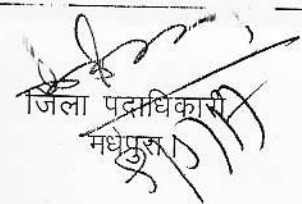 जिला पदाधिकारी
मधेपुरा।